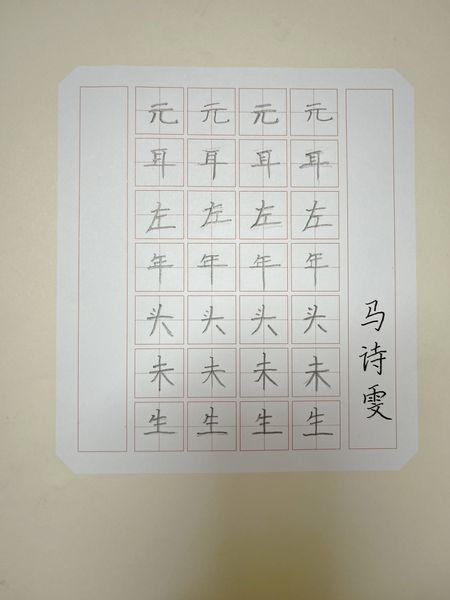 元元元元
耳耳耳耳
左左左左
年年年年
头头头头
未未未未
生生生生
马诗雯